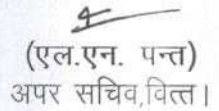 (एल.एन. पन्त)
अपर सचिव,वित्त।